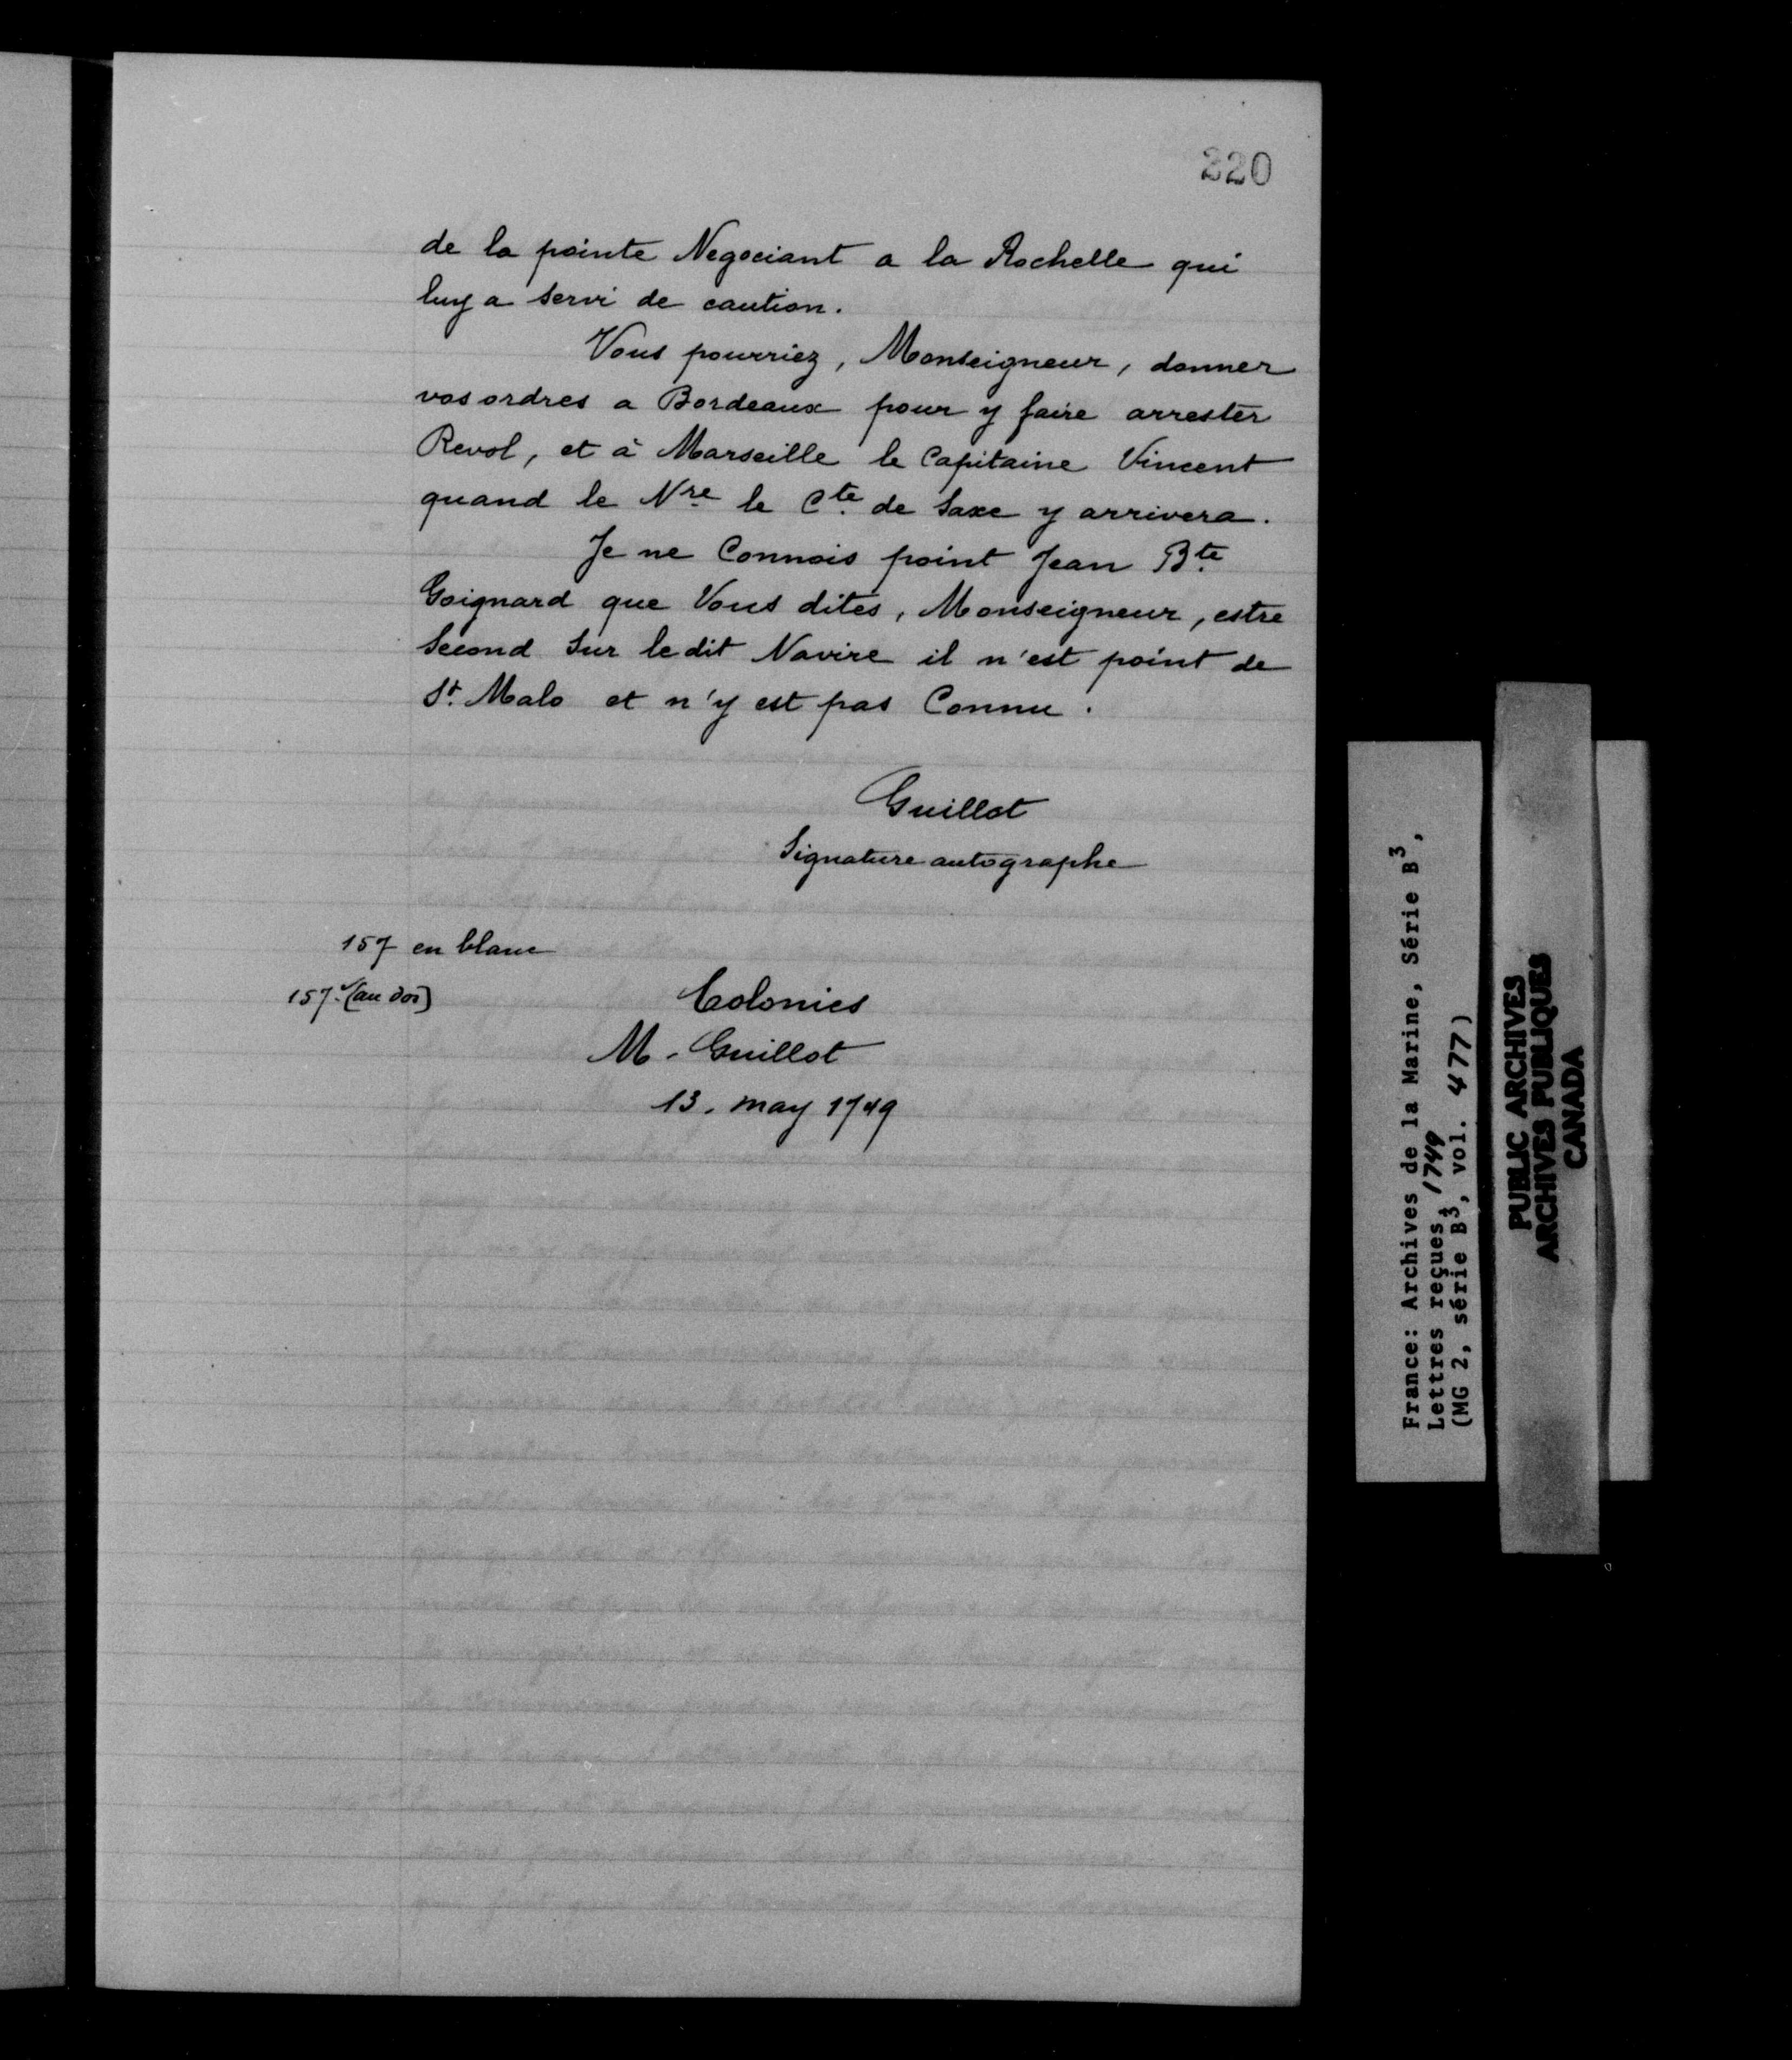 220
de la pointe Negociant a la Rochelle qui
luy a servi de caution.
Vous pourriez, Monseigneur, donner
vos ordres a Bordeaux pour y faire arrester
Revol, et à Marseille le Capitaine Vincent
quand le Nre le Cte de Saxe y arrivera.
Je ne Connois point Jean Bte
Goignard que Vous dites, Monseigneur, estre
Second Sur ledit Navire il n'est point de
St. Malo et n'y est pas Connu.
Guillot
Signature autographe
157 en blanc
157 v (au dos)
Colonies
M. Guillot
13. may 1749
France: Archives de la Marine, Série B3,
Lettres reçues, 1749
(MG 2, série B3, vol. 477)
PUBLIC ARCHIVES
ARCHIVES PUBLIQUES
CANADA